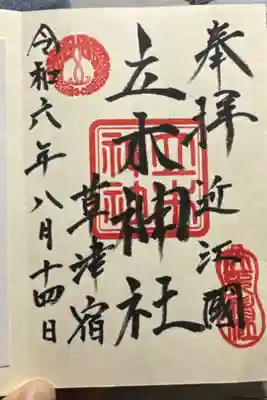 奉拝 近江國
立木神社
草津宿
令和六年八月十四日
立木神社